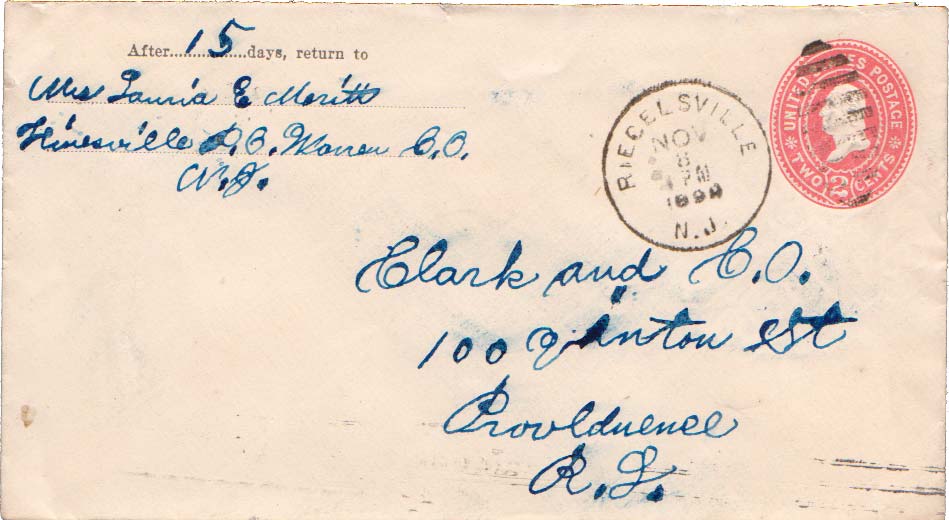 After 15 days, return to
Mrs Lauria E Meritt
Finesville P.O. Warren C.O.
N.J.
RIEGELSVILLE
NOV
8
4 PM
N.J.
UNITED STATES POSTAGE
TWO 2 CENTS
Clark and C.O.
100 Qinton St
Providuence
R.I.